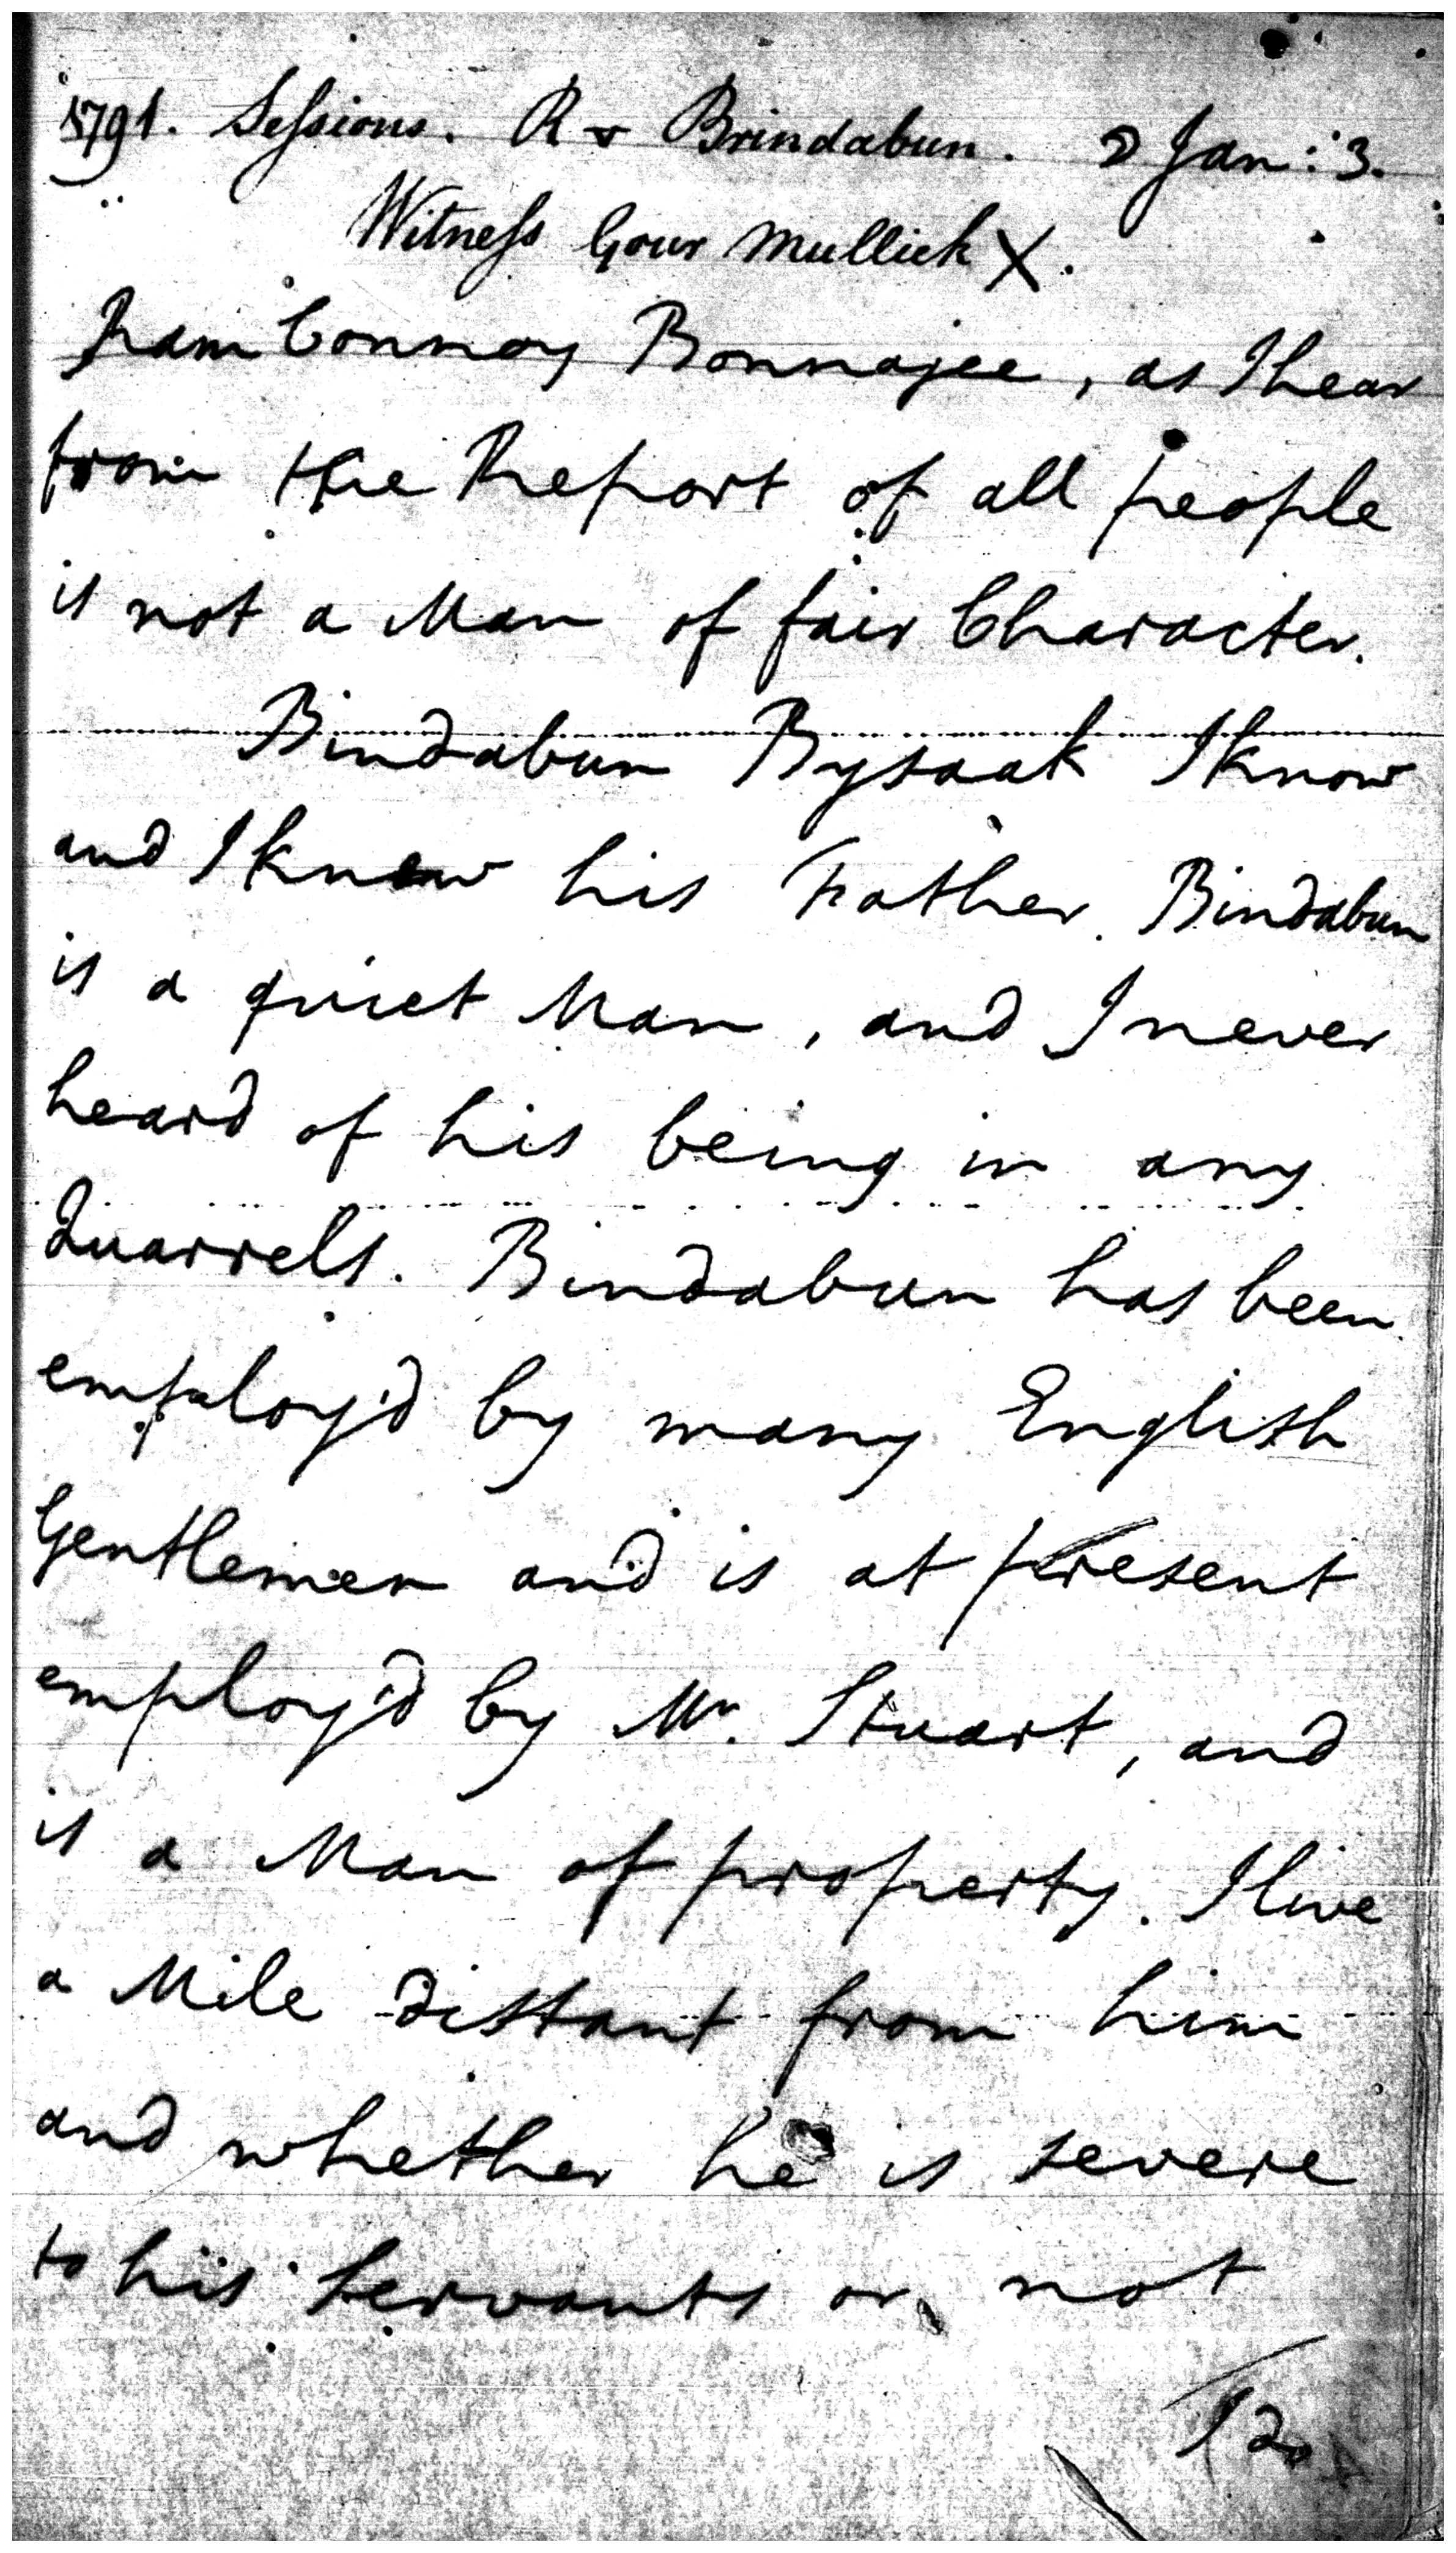 1791. Sessions. R v Brindabun. 2 Jan: 3.
Witness Gour Mullick X.
Ram Connoy Bonnajee, as I hear
from the Report of all people
is not a Man of fair Character.
Bindabun Bysaak I know
and I knew his Father. Bindabun
is a quiet Man, and I never
heard of his being in any
Quarrels. Bindabun has been
employ'd by many English
Gentlemen and is at present
employ'd by Mr. Stuart, and
is a Man of property. I live
a Mile distant from him
and whether he is severe
to his servants or not
I do